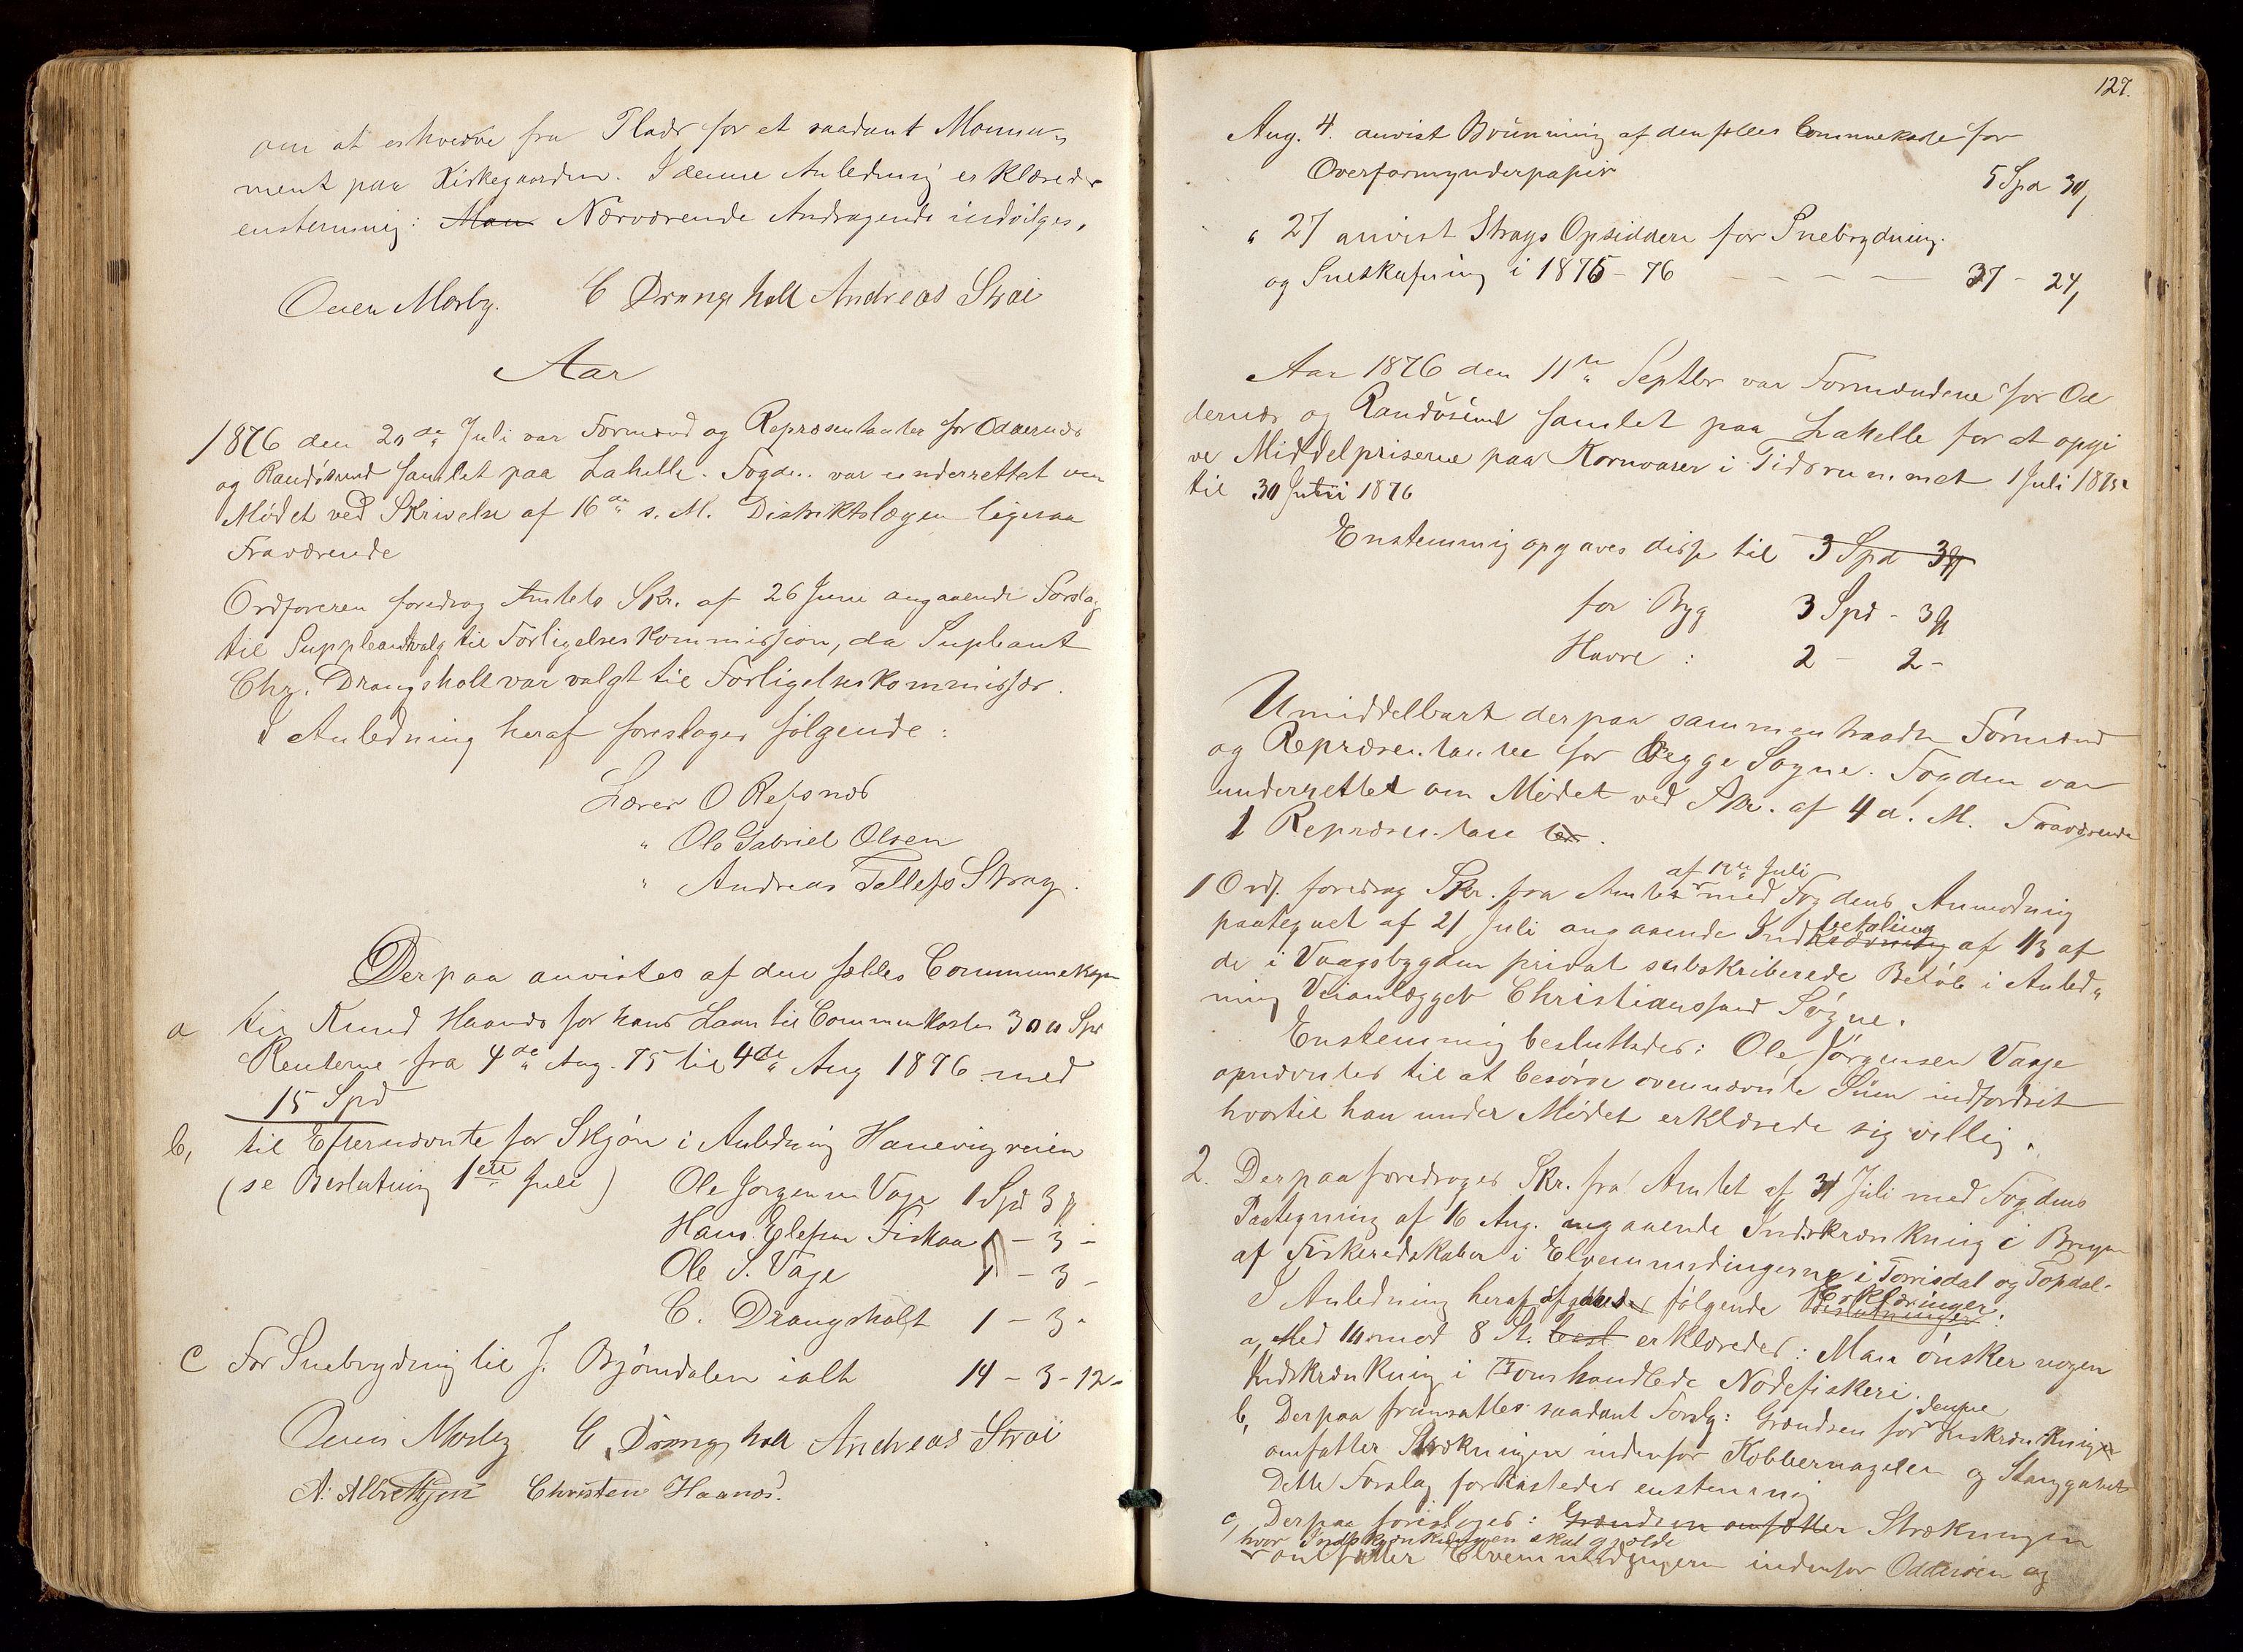 om at erhverve fra Plads for et saadant Monu-
ment paa Kirkegaarden. I denne Anledning erklæredes
enstemmig: Man Nærværende Andragende indvilges.
Ouen Mosby. C Drangsholt Andreas Strai
Aar
1876 den 20de Juli var Formænd og Repræsentanter for Oddernes
og Randøsund samlet paa Lahelle. Fogden var underrettet om
Mødet ved Skrivelse af 16de s. M. Distriktslægen ligesaa
Fraværende
Ordføreren foredrog Amtets Skr. af 26 Juni angaaende Forslag
til Suppleantvalg til Forligelseskommission, da Supleant
Chr. Drangsholt var valgt til Forligelseskommissær.
I Anledning heraf foresloges følgende:
Lærer O Refsnes
" Ole Gabriel Olsen
" Andreas Tellefs Stray.
Derpaa anvistes af den fælles Communekasse
a til Knud Haanes for hans Laan til Communekassen 300 Spd
Renterne fra 4de Aug. 75 til 4de Aug 1876 med
15 Spd
b, til Efternævnte for Skjøn i Anledning Hanevigveien
(se Beslutning 1ste Juli) Ole Jørgensen Vage 1 Spd 3 ß
Hans Elefsen Fiskaa 1 - 3 -
Ole S. Vage 1 - 3 -
C. Drangsholt 1 - 3 -
c For Snebrydning til J. Bjørndalen ialt 14 - 3 - 12 -
Ouen Mosby C. Drangsholt Andreas Strai
A. Albrethsen Christen Haanes.
127.
Aug. 4. anvist Brünning af den fælles Communekasse for
Overformynderpapir 5 Spd 30,
" 27 anvist Strays Opsiddere for Snebrydning
og Sneskufning i 1875-76 - - - - 37 - 24,
Aar 1876 den 11te Septbr var Formændene for Od
dernes og Randøsund samlet paa Lahelle for at opgi
ve Middelpriserne paa Kornvarer i Tidsrummet 1 Juli 1875
til 30 Juni 1876
Enstemmig opgaves disse til 3 Spd 3 ß
for Byg 3 Spd - 3 ß
Havre: 2 - 2 -
Umiddelbart derpaa sammentraadte Formænd
og Repræsentanter for Begge Sogne. Fogden var
underrettet om Mødet ved Skr. af 4 d. M. Fraværende
1 Repræsentant ter.
af 12te Juli
1 Ordf. foredrog Skr. fra Amtet med Fogdens Anmodning
betaling
paategnet af 21 Juli angaaende Ind af 1/3 af
de i Vaagsbygden privat subskriberede Beløb i Anled-
ning Veianlægget Christianssand Søgne.
Enstemmig besluttedes: Ole Jørgensen Vaage
opnævntes til at besørge ovennævnte Sum indfordret
hvortil han under Mødet erklærede sig villig.
2. Derpaa foredroges Skr. fra Amtet af 31 Juli med Fogdens
Paategning af 16 Aug. angaaende Indskrænkning i Brugen
af Fiskeredskaber i Elvemundingerne i Torrisdal og Topdal.
Erklæringer
I Anledning heraf afgaves følgende Beslutninger:
a, Med 10 mod 8 St. besl erklæredes: Man ønsker nogen
Indskrænkning i Fomhandlede Nodefiskeri.
denne
b, Derpaa fremsattes saadant Forslg: Grændsen for Inskrænkning
omfatter Strækningen indenfor Kobbernaglen og Stanggabet
Dette Forslag forkastedes enstemmig
c, Derpaa foresloges: Grændsen omfatter Strækningen
hvor Indskrænkningen skal gjælde
omfatter Elvemundingerne indenfor Odderøen og